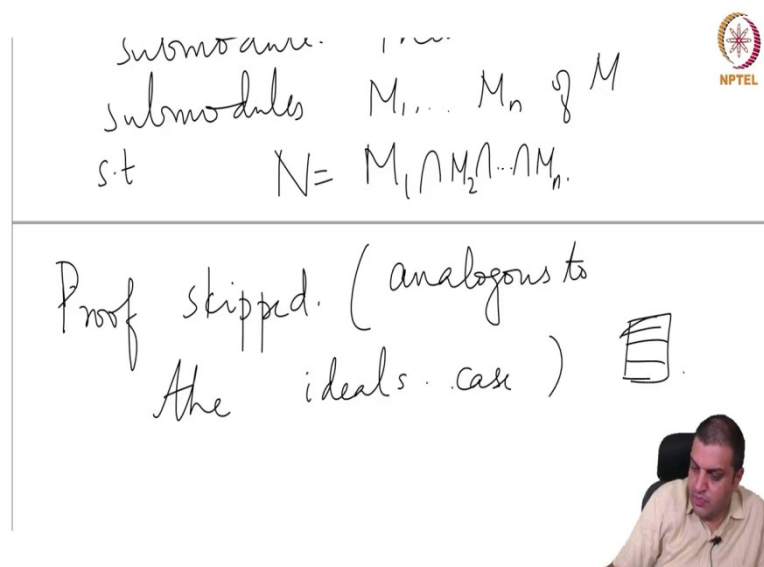 submodule.
submodules M₁,... Mₙ of M
s.t N = M₁∩M₂∩...∩Mₙ.
Proof skipped. (analogous to
the ideals. case)
NPTEL